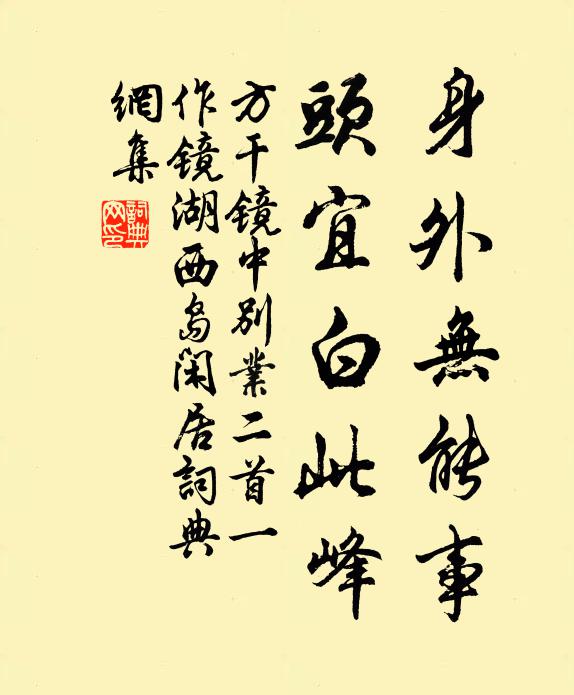 身外無能事
頭宜白此峰
方干镜中别業二首一
作镜湖西島闲居詞典
網集
詞典網印